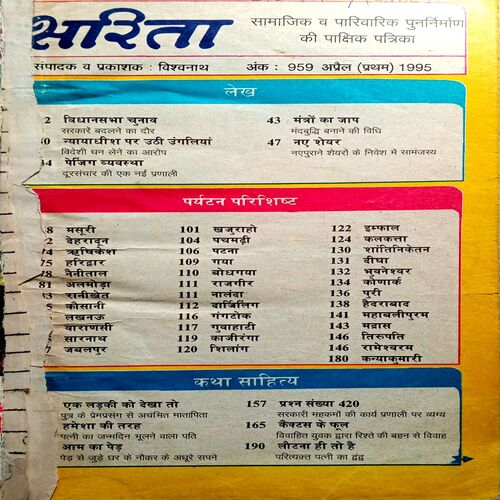 सरिता
सामाजिक व पारिवारिक पुनर्निर्माण
की पाक्षिक पत्रिका
संपादक व प्रकाशक : विश्वनाथ अंक : 959 अप्रैल (प्रथम) 1995
लेख
2 विधानसभा चुनाव
सरकारें बदलने का दौर
50 न्यायाधीश पर उठी उंगलियां
विदेशी धन लेने का आरोप
54 पेजिंग व्यवस्था
दूरसंचार की एक नई प्रणाली
43 मंत्रों का जाप
मंदबुद्धि बनाने की विधि
47 नए शेयर
नएपुराने शेयरों के निवेश में सामंजस्य
पर्यटन परिशिष्ट
8 मसूरी
2 देहरादून
74 ऋषिकेश
75 हरिद्वार
78 नैनीताल
81 अलमोड़ा
83 रानीखेत
5 कौसानी
लखनऊ
वाराणसी
सारनाथ
7 जबलपुर
101 खजुराहो
104 पचमढ़ी
106 पटना
109 गया
110 बोधगया
111 राजगीर
111 नालंदा
112 दार्जिलिंग
116 गंगटोक
117 गुवाहाटी
119 काजीरंगा
120 शिलांग
122 इम्फाल
124 कलकत्ता
130 शांतिनिकेतन
131 दीघा
132 भुवनेश्वर
134 कोणार्क
136 पुरी
138 हैदराबाद
141 महाबलीपुरम
143 मद्रास
146 तिरुपति
146 रामेश्वरम
180 कन्याकुमारी
कथा साहित्य
एक लड़की को देखा तो
पुत्र के प्रेमप्रसंग से अचंभित मातापिता
हमेशा की तरह
पत्नी का जन्मदिन भूलने वाला पति
आम का पेड़
पेड़ से जुड़े घर के नौकर के अधूरे सपने
157 प्रश्न संख्या 420
सरकारी महकमों की कार्य प्रणाली पर व्यंग्य
165 कैक्टस के फूल
विवाहित युवक द्वारा रिश्ते की बहन से विवाह
190 लौटना ही तो है
परित्यक्त पत्नी का द्वंद्व